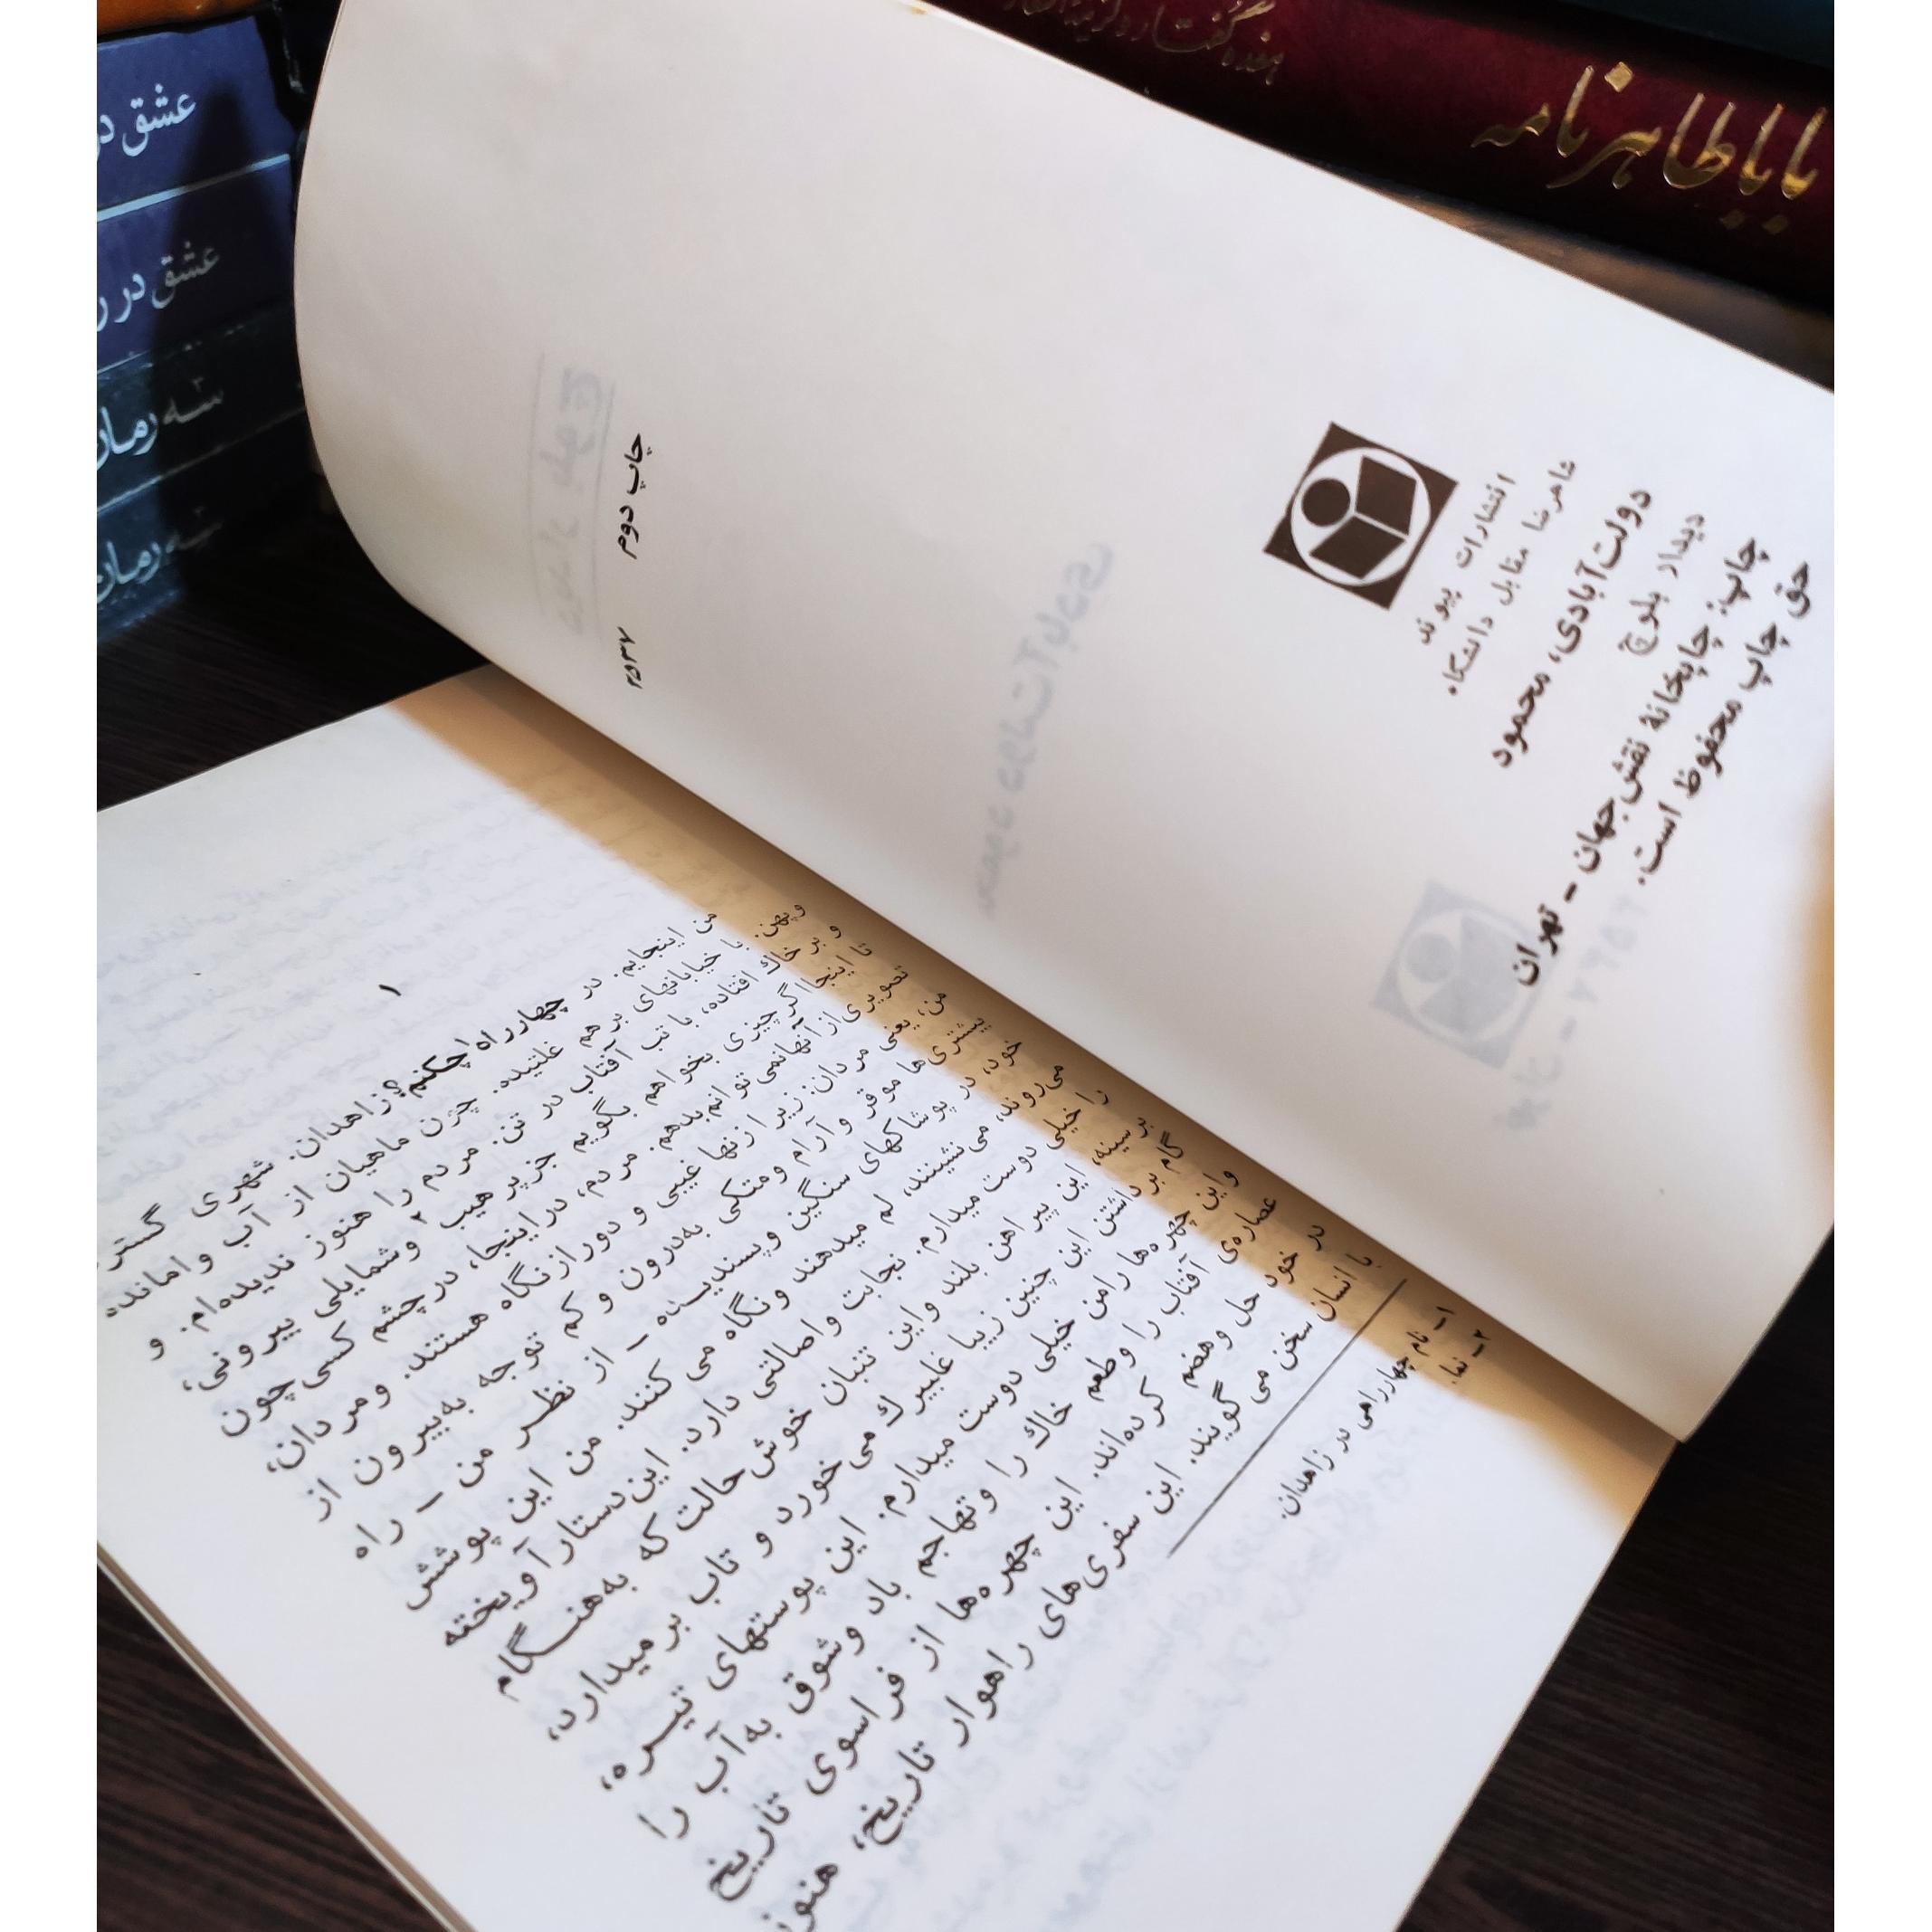 عشق در
عشق در ر
سه رمان
سه رمان
باباطاهرنامه
هفده گفتار
چاپ دوم
۲۵۳۷
انتشارات پیوند
شاهرضا مقابل دانشگاه
دولت‌آبادی، محمود
دیدار بلوچ
چاپ: چاپخانهٔ نقش‌جهان - تهران
حق چاپ محفوظ است.
۱
من اینجایم. در چهارراه چکنم؟¹ زاهدان. شهری گستر
وپهن. با خیابانهای برهم غلتیده. چون ماهیان از آب وامانده
و بر خاك افتاده، با تب آفتاب در تن. مردم را هنوز ندیده‌ام. و
تا اینجا اگر چیزی بخواهم بگویم جز پرهیب ۲ وشمایلی بیرونی،
تصویری از آنهانمی‌توانم‌بدهم. مردم، دراینجا، درچشم کسی‌چون
من، یعنی مردان: زیرا زنها غیبی و دورازنگاه هستند. ومردان،
بیشتری‌ها موقر و آرام ومتکی به‌درون و کم توجه به‌بیرون از
خود، در پوشاکهای سنگین وپسندیده - از نظر من - راه
می‌روند، می‌نشینند، لم میدهند ونگاه می‌کنند. من این پوشش
را خیلی دوست میدارم. نجابت واصالتی دارد. این‌دستار آویخته
بر سینه، این پیراهن بلند واین تنبان خوش‌حالت که به‌هنگام
گام برداشتن این چنین زیبا غلبیرك می‌خورد و تاب برمیدارد،
واین چهره‌ها رامن خیلی دوست میدارم. این پوستهای تیره،
عصاره‌ی آفتاب را وطعم خاك را وتهاجم باد وشوق به‌آب را
در خود حل وهضم کرده‌اند. این چهره‌ها از فراسوی تاریخ
با انسان سخن می‌گویند. این سفری‌های راهوار تاریخ، هنوز
۱- نام چهارراهی در زاهدان.
۲- نما.